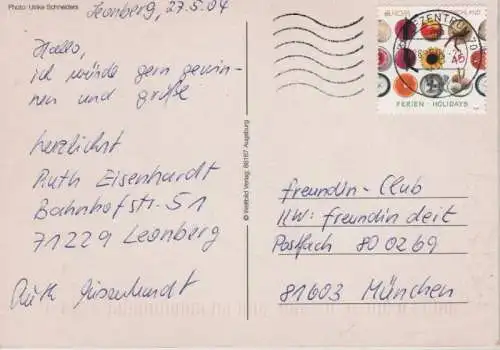 Photo: Ulrike Schneiders
Leonberg, 27.5.04
Hallo,
ich würde gern gewin-
nen und grüße
herzlichst
Ruth Eisenhardt
Bahnhofstr. 51
71229 Leonberg
Ruth Eisenhardt
© Weltbild Verlag, 86167 Augsburg
EUROPA
DEUTSCHLAND
BRIEFZENTRUM 70
45
FERIEN · HOLIDAYS
freundin-Club
KW: freundin deit
Postfach 800269
81603 München